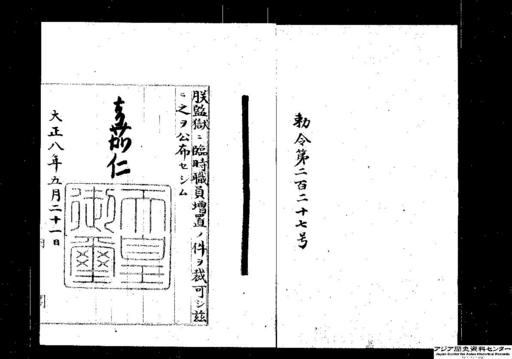 勅令第二百二十七号
朕監獄ニ臨時職員増置ノ件ヲ裁可シ茲
ニ之ヲ公布セシム
嘉仁
天皇御璽
大正八年五月二十一日
アジア歴史資料センター
Japan Center for Asian Historical Records